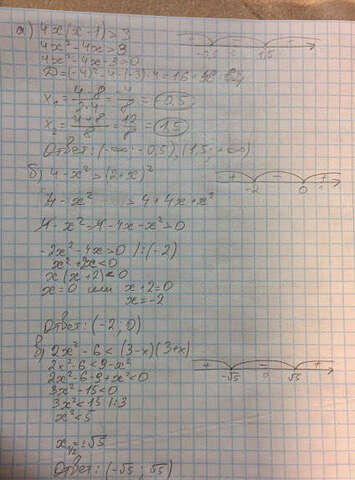 а) 4x(x-1)>3
4x²-4x>3
4x²-4x-3>0
D=(-4)²-4·(-3)·4=16+48
x₁=(4-8)/(2·4)=-4/8=-0,5
x₂=(4+8)/8=12/8=1,5
-0,5 1,5
Ответ: (-∞;-0,5),(1,5;+∞)
б) 4-x²>(2+x)²
+ - +
-2 0
4-x² > 4+4x+x²
4-x²-4-4x-x²>0
-2x²-4x>0 /:(-2)
x²+2x<0
x(x+2)<0
x=0 или x+2=0
x=-2
Ответ: (-2; 0)
в) 2x²-6<(3-x)(3+x)
+ - +
-√5 0 √5
2x²-6<9-x²
2x²-6-9+x²<0
3x²-15<0
3x²<15 /:3
x²<5
x₁/₂=±√5
Ответ: (-√5; √5)